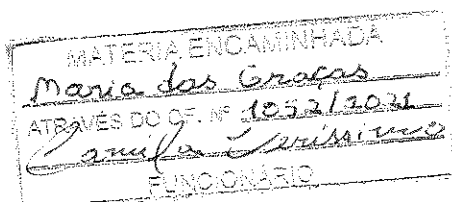 MATÉRIA ENCAMINHADA
Maria das Graças
ATRAVÉS DO OF. Nº 1032/2021
Camila Verissimo
FUNCIONÁRIO